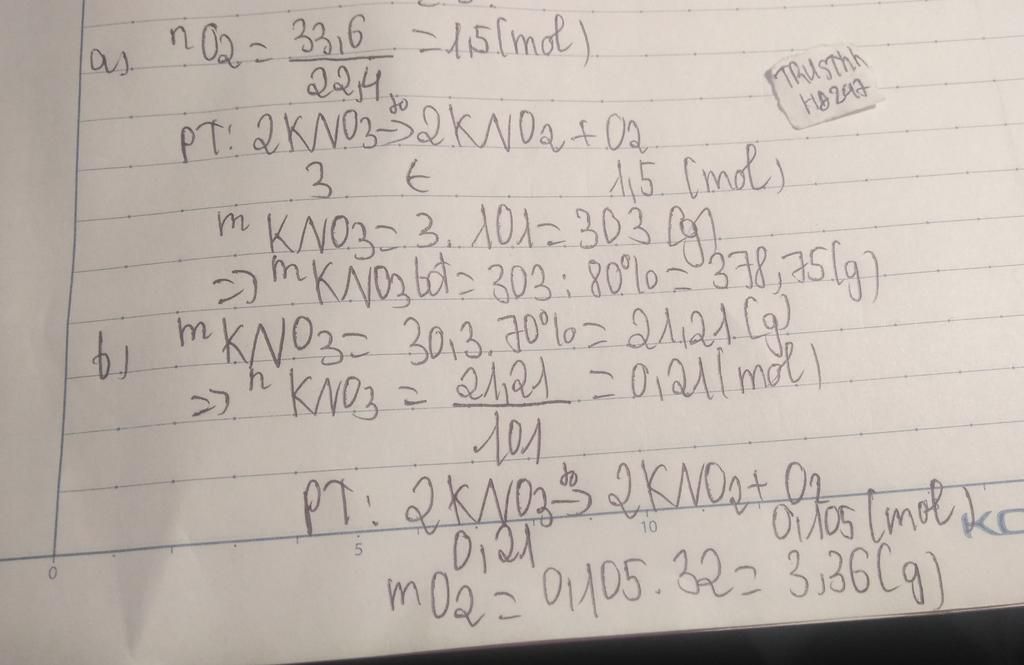 a). nO2 = 33,6 / 22,4 = 1,5 (mol)
TRUSTAA
H8247
PT: 2KNO3 →t° 2KNO2 + O2
3 ← 1,5 (mol)
m KNO3 = 3. 101 = 303 (g)
=> m KNO3 bđ = 303 : 80% = 378,75 (g)
b) m KNO3 = 30,3. 70% = 21,21 (g)
=> n KNO3 = 21,21 / 101 = 0,21 (mol)
PT: 2KNO3 →t° 2KNO2 + O2
0,21 0,105 (mol)
mO2 = 0,105. 32 = 3,36 (g)
0 5 10 KC